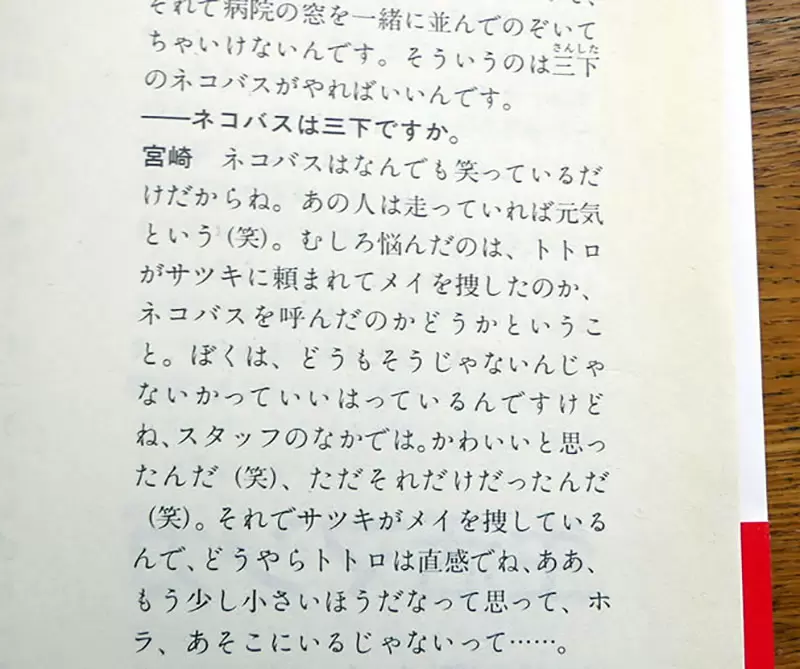 それで病院の窓を一緒に並んでのぞいて
ちゃいけないんです。そういうのは三下
さんした
のネコバスがやればいいんです。
――ネコバスは三下ですか。
宮崎　ネコバスはなんでも笑っているだ
けだからね。あの人は走っていれば元気
という(笑)。むしろ悩んだのは、トトロ
がサツキに頼まれてメイを捜したのか、
ネコバスを呼んだのかどうかというこ
と。ぼくは、どうもそうじゃないんじゃ
ないかっていいはっているんですけど
ね、スタッフのなかでは。かわいいと思っ
たんだ(笑)、ただそれだけだったんだ
(笑)。それでサツキがメイを捜している
んで、どうやらトトロは直感でね、ああ、
もう少し小さいほうだなって思って、ホ
ラ、あそこにいるじゃないって……。